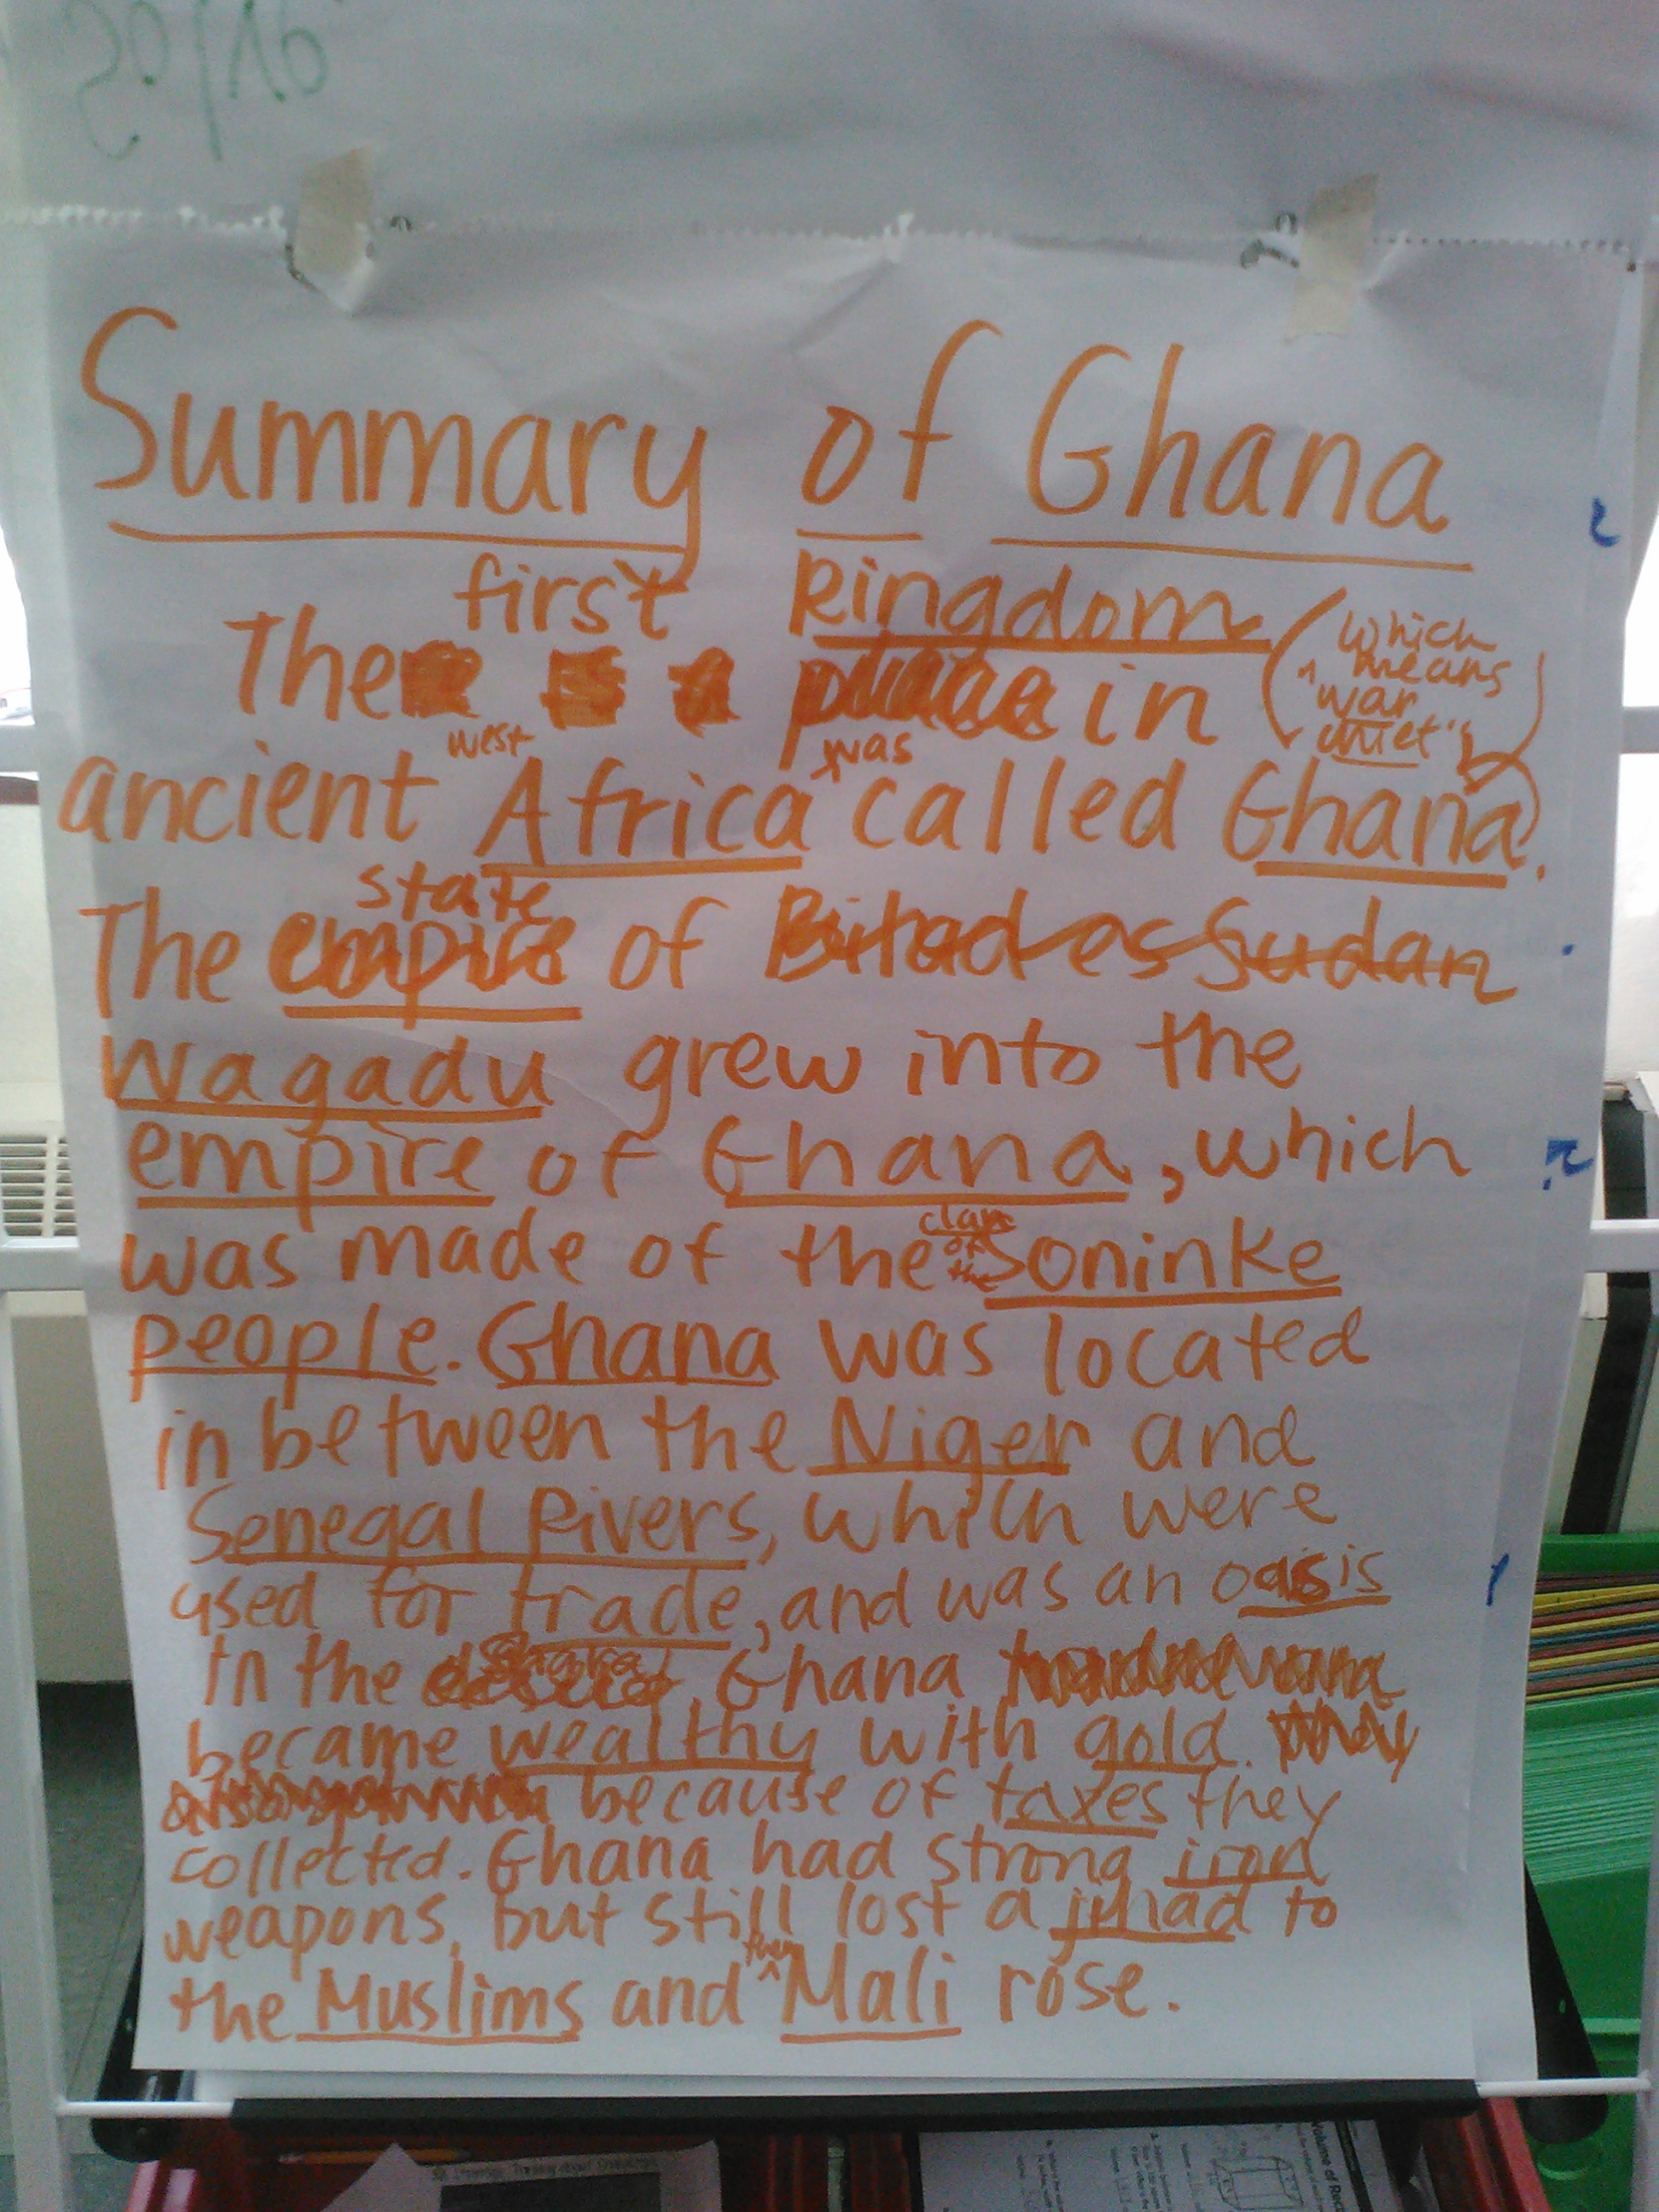 Summary of Ghana
first Kingdom
The in (which means "war chief")
west was
ancient Africa called Ghana.
state
The empire of Bilad as Sudan
Wagadu grew into the
empire of Ghana, which
clans of the
was made of the Soninke
people. Ghana was located
in between the Niger and
Senegal Rivers, which were
used for trade, and was an oasis
in the Sahara. Ghana
became wealthy with gold.
because of taxes they
collected. Ghana had strong iron
weapons, but still lost a jihad to
then
the Muslims and Mali rose.